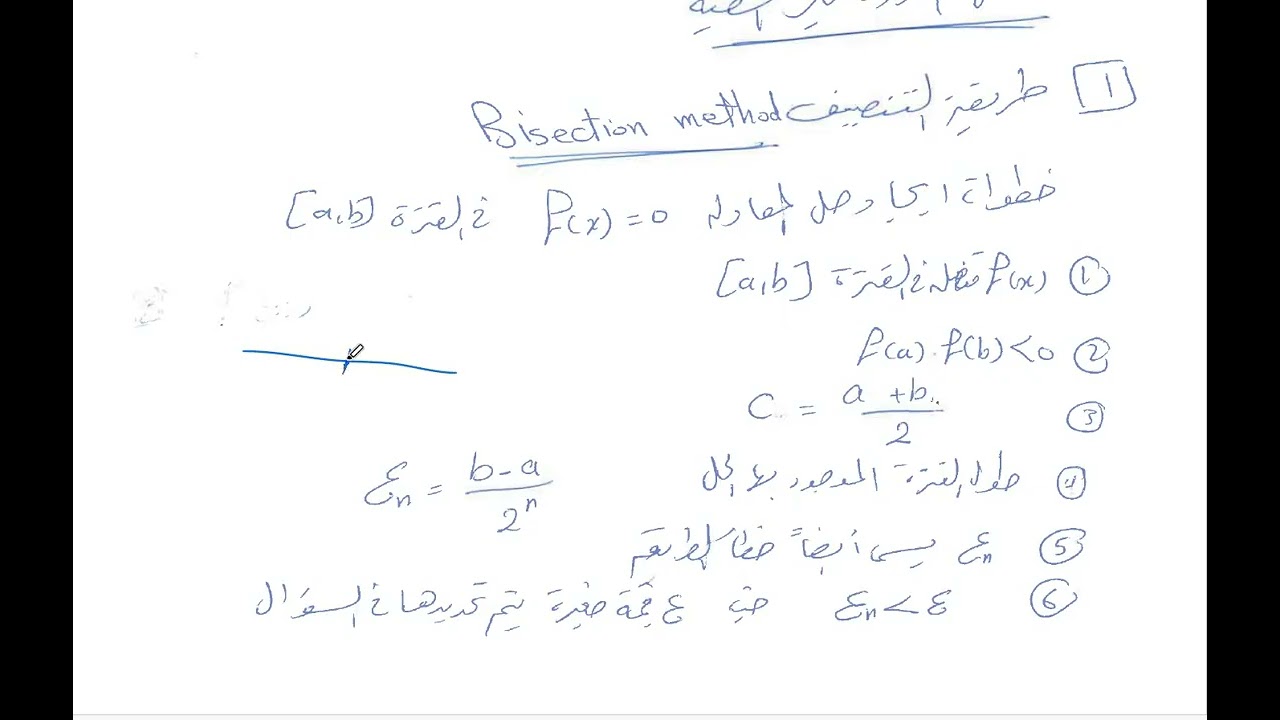 1 طريقة التنصيف Bisection method
خطوات ايجاد حل المعادلة f(x) = 0 في الفترة [a,b]
① f(x) متصلة في الفترة [a,b]
② f(a) . f(b) < 0
③ C = a + b / 2
④ طول الفترة الموجود بها الحل εn = b - a / 2^n
⑤ εn يسمى أيضاً خطأ الطريقة
⑥ εn < ε حيث ε قيمة صغيرة يتم تحديدها في السؤال